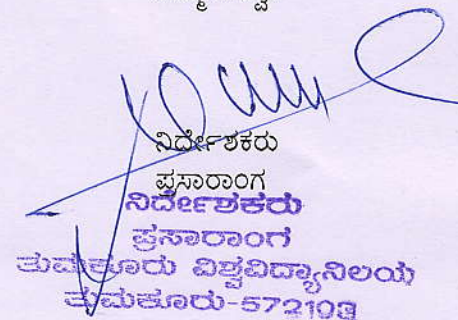 ನಿರ್ದೇಶಕರು
ಪ್ರಸಾರಾಂಗ
ನಿರ್ದೇಶಕರು
ಪ್ರಸಾರಾಂಗ
ತುಮಕೂರು ವಿಶ್ವವಿದ್ಯಾನಿಲಯ
ತುಮಕೂರು-572103